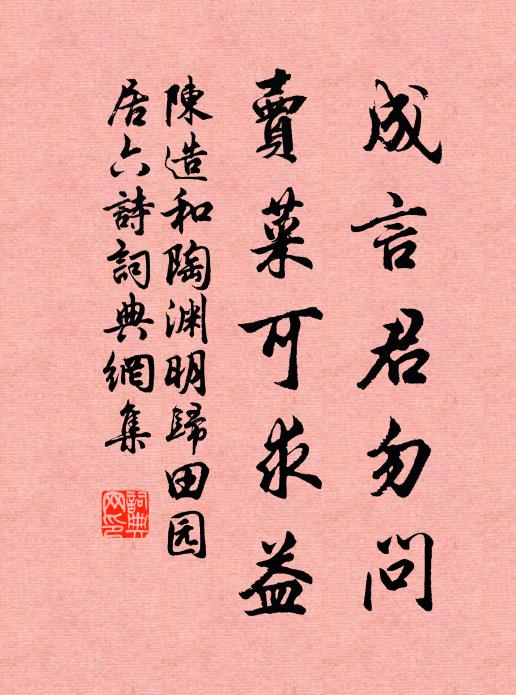 成言君勿問
賣菜可求益
陳造和陶淵明歸田园
居六詩詞典網集
詞典
网印